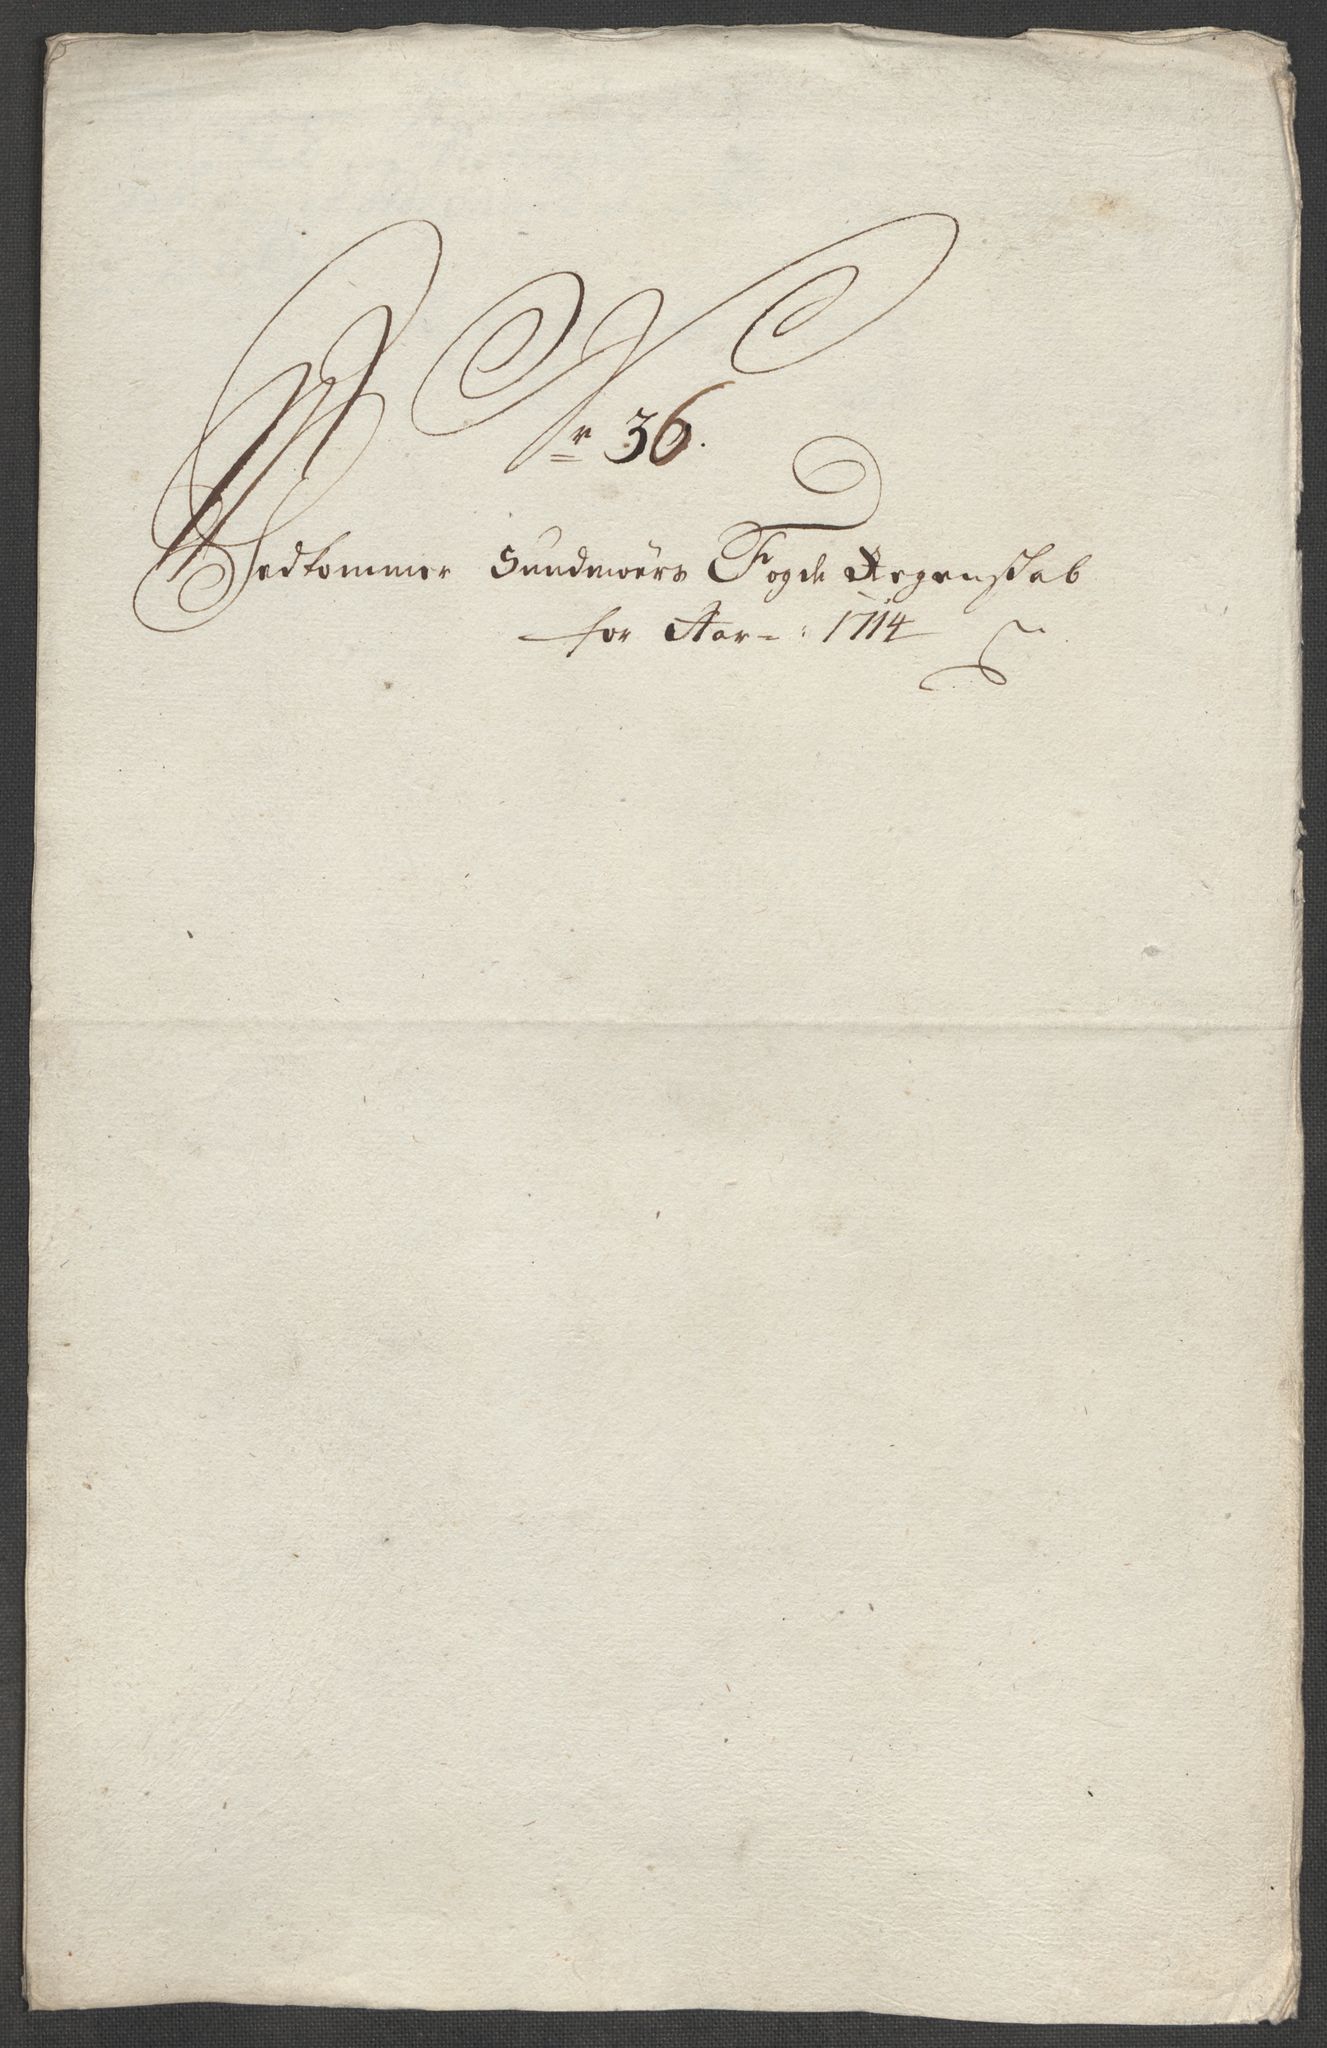 Nr 36.
Vedkommer Sundmoers Fogde Regenskab
for Aar = 1714